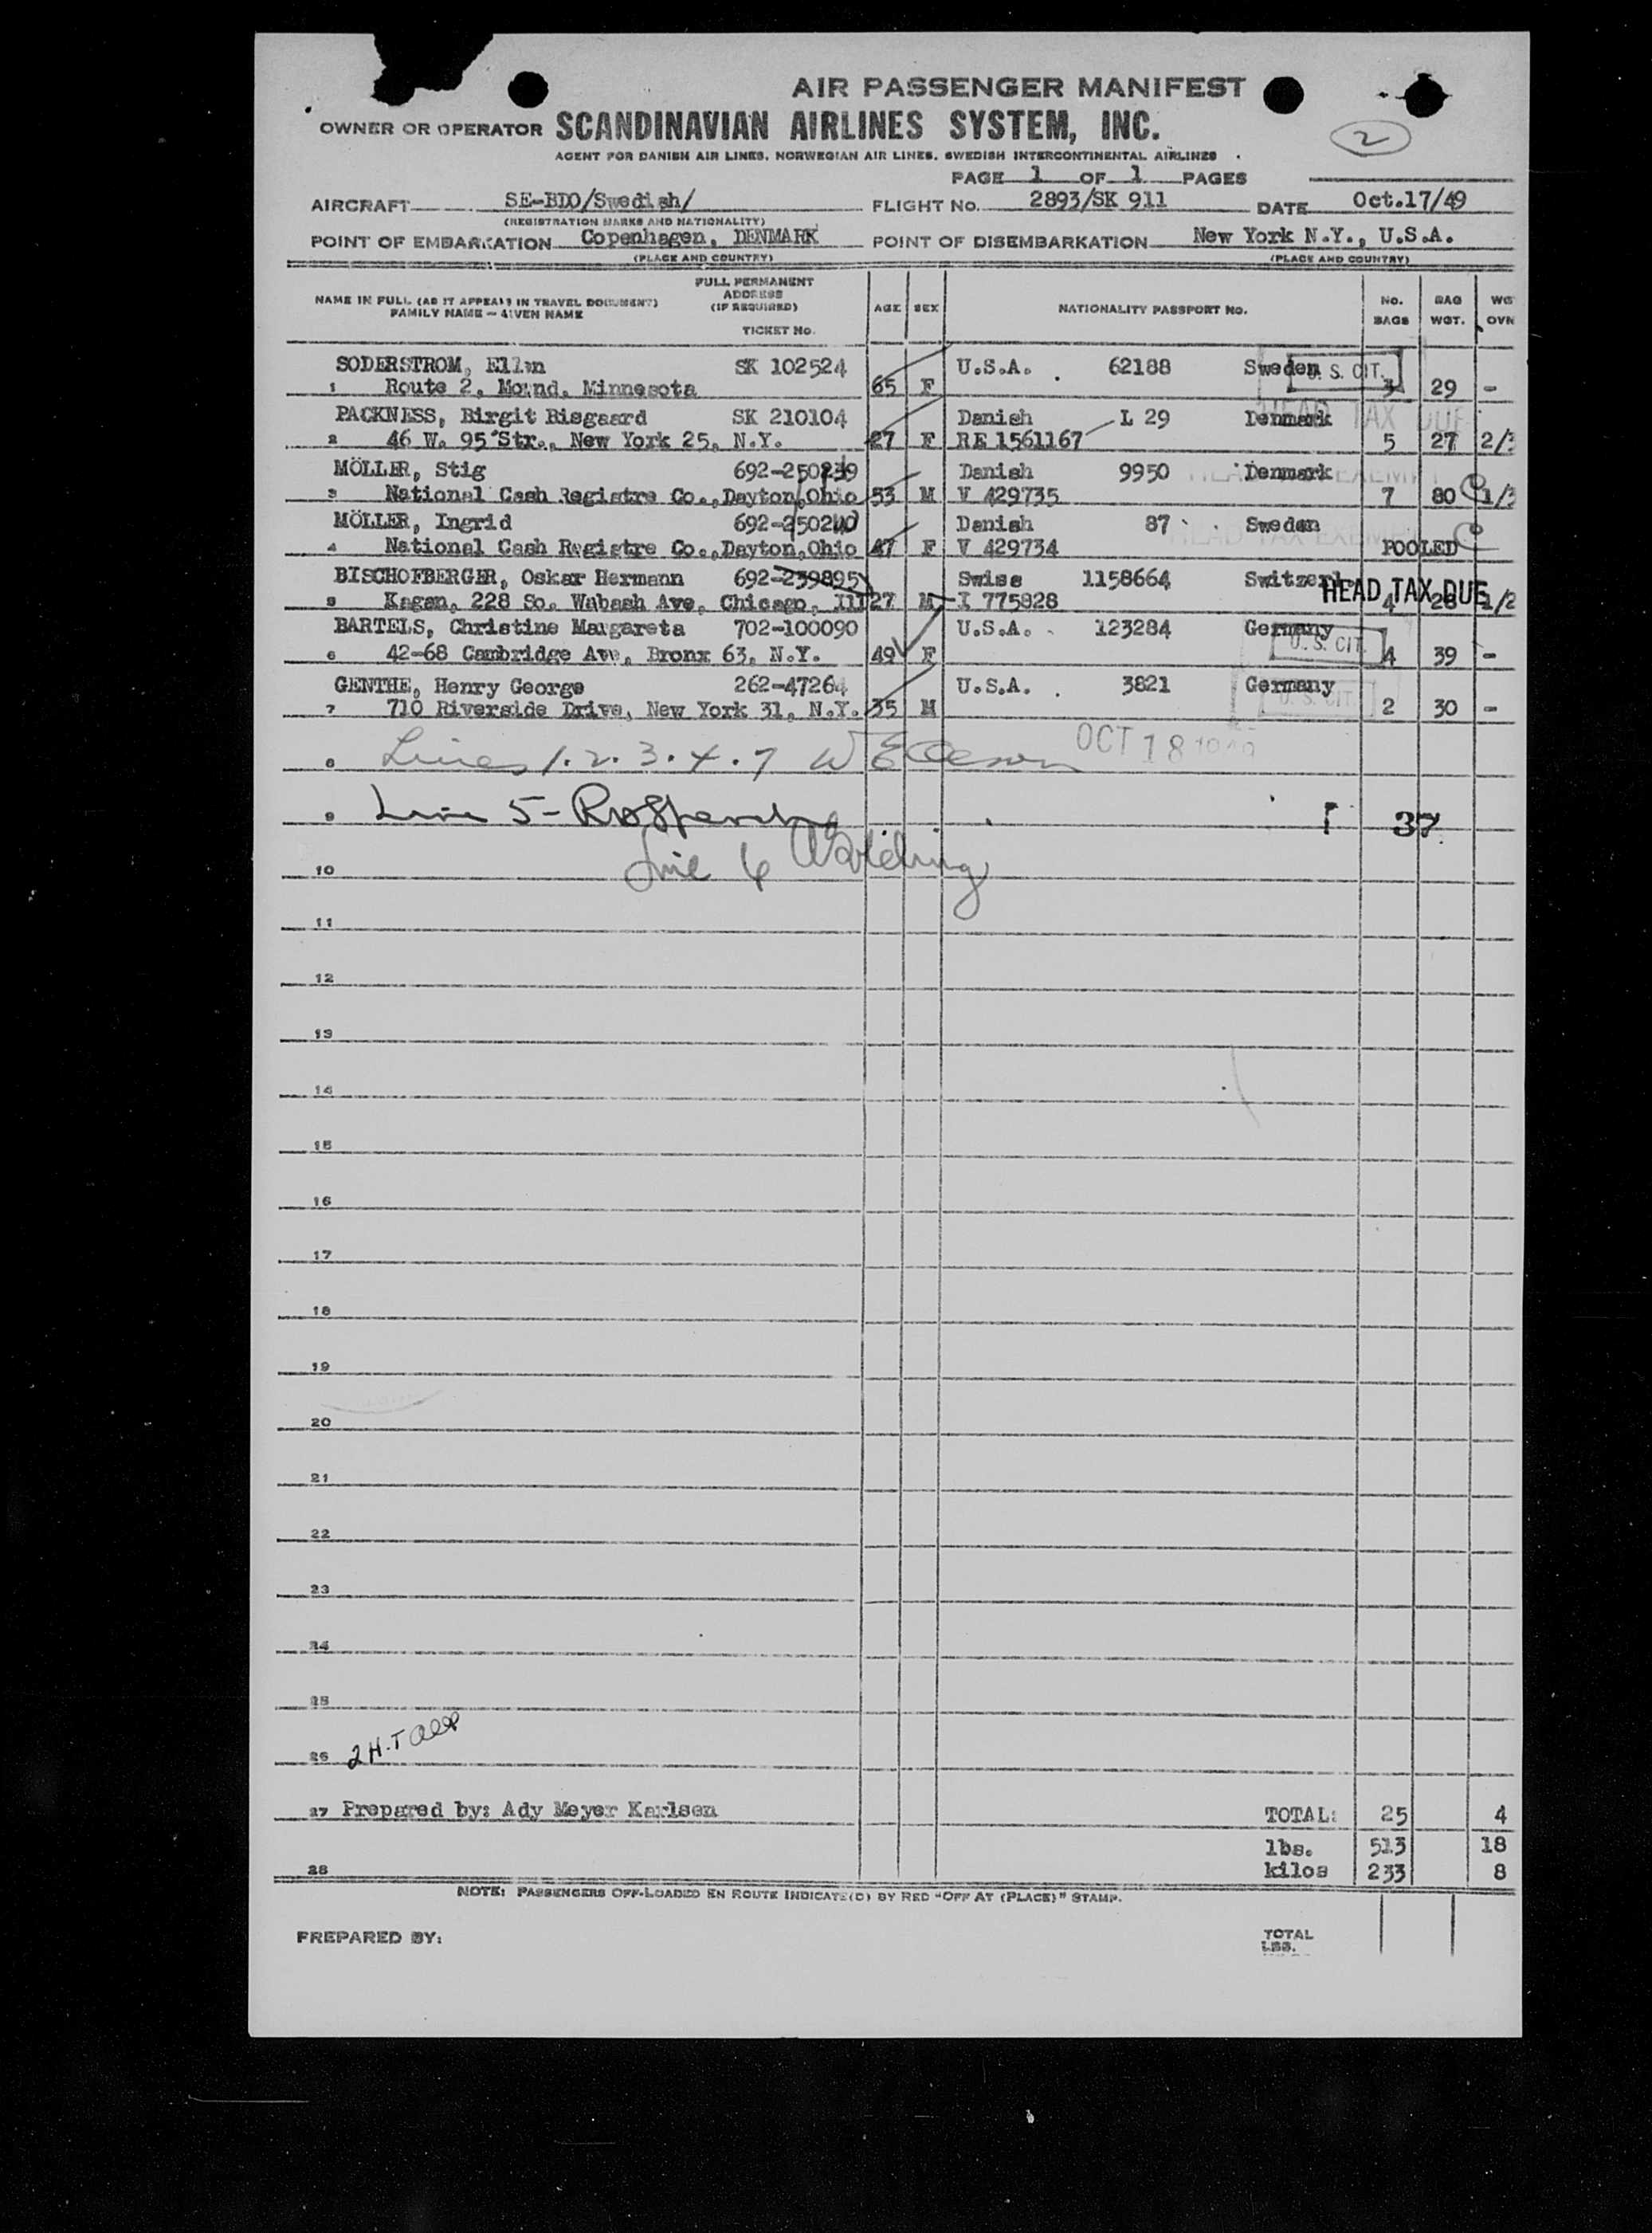 AIR PASSENGER MANIFEST
OWNER OR OPERATOR SCANDINAVIAN AIRLINES SYSTEM, INC.
2
AGENT FOR DANISH AIR LINES, NORWEGIAN AIR LINES, SWEDISH INTERCONTINENTAL AIRLINES
PAGE 1 OF 1 PAGES
AIRCRAFT SE-BDO/Swedish/ FLIGHT No. 2893/SK 911 DATE Oct.17/49
(REGISTRATION MARKS AND NATIONALITY)
POINT OF EMBARKATION Copenhagen, DENMARK POINT OF DISEMBARKATION New York N.Y., U.S.A.
(PLACE AND COUNTRY) (PLACE AND COUNTRY)
FULL PERMANENT
NAME IN FULL (AS IT APPEARS IN TRAVEL DOCUMENT) ADDRESS No. BAG WGT
FAMILY NAME - GIVEN NAME (IF REQUIRED) AGE SEX NATIONALITY PASSPORT No. BAGS WGT. OVN
TICKET No.
SODERSTROM, Ellen SK 102524 U.S.A. 62188 Sweden U. S. CIT.
1 Route 2, Mound, Minnesota 65 F 3 29 -
PACKNESS, Birgit Bisgaard SK 210104 Danish L 29 Denmark HEAD TAX DUE
2 46 W. 95 Str., New York 25, N.Y. 27 F RE 1561167 5 27 2/3
MÖLLER, Stig 692-250239 Danish 9950 Denmark HEAD TAX EXEMPT
3 National Cash Registre Co., Dayton, Ohio 53 M V 429735 7 80 1/3
MÖLLER, Ingrid 692-250240 Danish 87 Sweden HEAD TAX EXEMPT
4 National Cash Registre Co., Dayton, Ohio 47 F V 429734 POOLED
BISCHOFBERGER, Oskar Hermann 692-239895 Swiss 1158664 Switzerl. HEAD TAX DUE
5 Kagan, 228 So. Wabash Ave, Chicago, Ill 27 M I 775828 4 28 1/2
BARTELS, Christine Margareta 702-100090 U.S.A. 123284 Germany U. S. CIT.
6 42-68 Cambridge Ave, Bronx 63, N.Y. 49 F 4 39 -
GENTHE, Henry George 262-47264 U.S.A. 3821 Germany U. S. CIT.
7 710 Riverside Drive, New York 31, N.Y. 35 M 2 30 -
8 Lines 1. 2. 3. 4. 7 OCT 18 1949
9 Line 5- 37
10 Line 6
11
12
13
14
15
16
17
18
19
20
21
22
23
24
25
26 2 H.T
27 Prepared by: Ady Meyer Karlsen TOTAL: 25 4
lbs. 513 18
28 kilos 233 8
NOTE: PASSENGERS OFF-LOADED EN ROUTE INDICATE(D) BY RED "OFF AT (PLACE)" STAMP.
PREPARED BY: TOTAL
LBS.